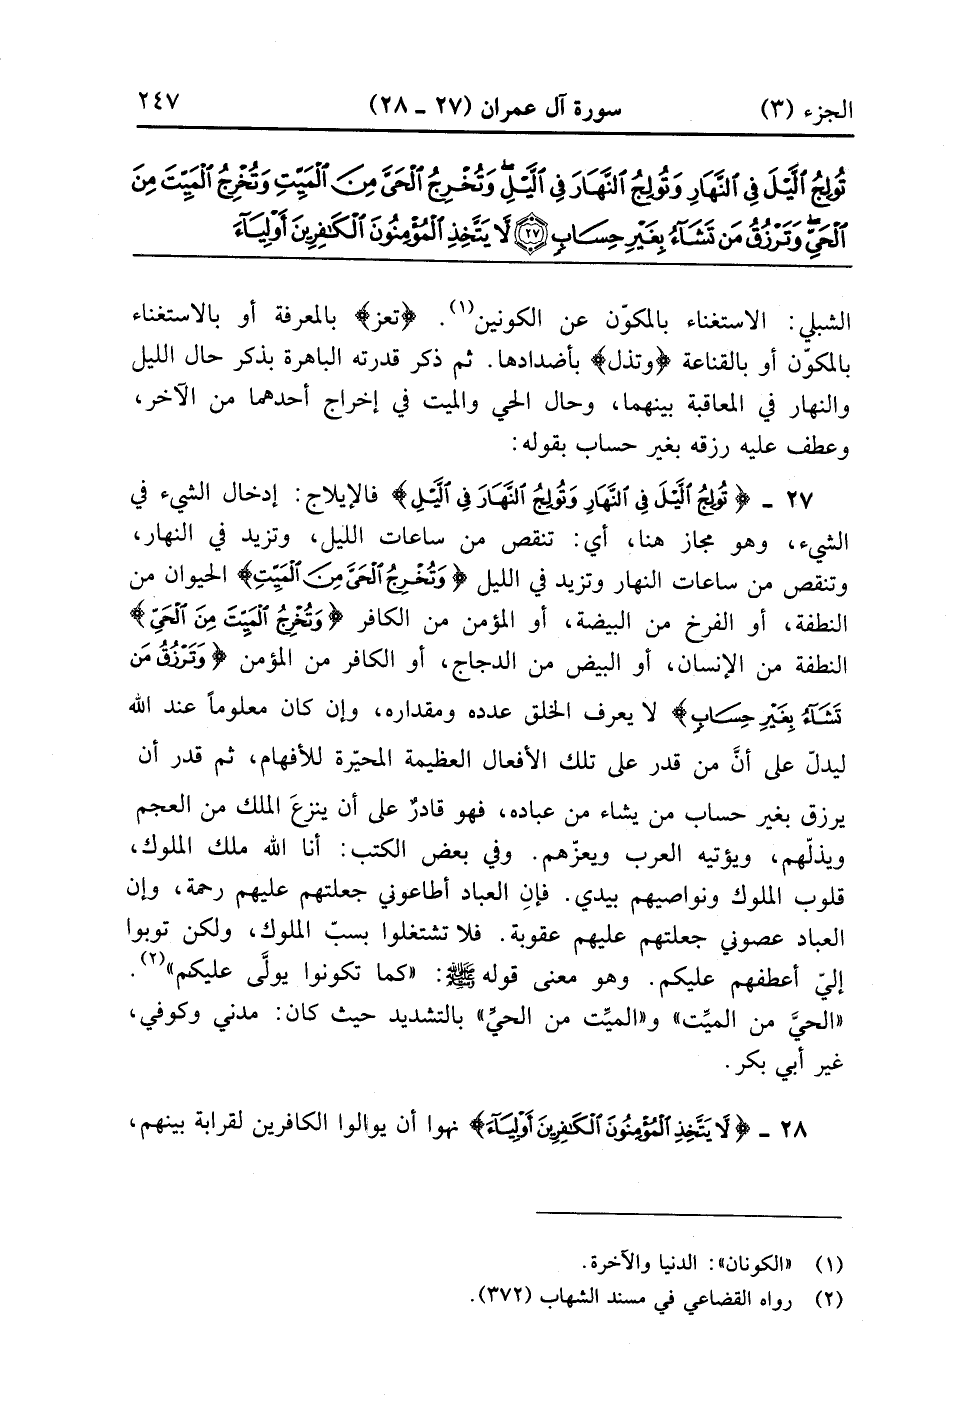 الجزء (٣) سورة آل عمران (٢٧ ـ ٢٨) ٢٤٧
تُولِجُ ٱلَّيْلَ فِي ٱلنَّهَارِ وَتُولِجُ ٱلنَّهَارَ فِي ٱلَّيْلِ ۖ وَتُخْرِجُ ٱلْحَيَّ مِنَ ٱلْمَيِّتِ وَتُخْرِجُ ٱلْمَيِّتَ مِنَ
ٱلْحَيِّ ۖ وَتَرْزُقُ مَن تَشَآءُ بِغَيْرِ حِسَابٍ ﴿٢٧﴾ لَّا يَتَّخِذِ ٱلْمُؤْمِنُونَ ٱلْكَٰفِرِينَ أَوْلِيَآءَ
الشبلي: الاستغناء بالمكوّن عن الكونين(١). ﴿تعز﴾ بالمعرفة أو بالاستغناء
بالمكوّن أو بالقناعة ﴿وتذل﴾ بأضدادها. ثم ذكر قدرته الباهرة بذكر حال الليل
والنهار في المعاقبة بينهما، وحال الحي والميت في إخراج أحدهما من الآخر،
وعطف عليه رزقه بغير حساب بقوله:
٢٧ ـ ﴿تُولِجُ ٱلَّيْلَ فِي ٱلنَّهَارِ وَتُولِجُ ٱلنَّهَارَ فِي ٱلَّيْلِ﴾ فالإيلاج: إدخال الشيء في
الشيء، وهو مجاز هنا، أي: تنقص من ساعات الليل، وتزيد في النهار،
وتنقص من ساعات النهار وتزيد في الليل ﴿وَتُخْرِجُ ٱلْحَيَّ مِنَ ٱلْمَيِّتِ﴾ الحيوان من
النطفة، أو الفرخ من البيضة، أو المؤمن من الكافر ﴿وَتُخْرِجُ ٱلْمَيِّتَ مِنَ ٱلْحَيِّ﴾
النطفة من الإنسان، أو البيض من الدجاج، أو الكافر من المؤمن ﴿وَتَرْزُقُ مَن
تَشَآءُ بِغَيْرِ حِسَابٍ﴾ لا يعرف الخلق عدده ومقداره، وإن كان معلوماً عند الله
ليدلّ على أنَّ من قدر على تلك الأفعال العظيمة المحيّرة للأفهام، ثم قدر أن
يرزق بغير حساب من يشاء من عباده، فهو قادرٌ على أن ينزعَ الملك من العجم
ويذلّهم، ويؤتيه العرب ويعزّهم. وفي بعض الكتب: أنا الله ملك الملوك،
قلوب الملوك ونواصيهم بيدي. فإنِ العباد أطاعوني جعلتهم عليهم رحمة، وإن
العباد عصوني جعلتهم عليهم عقوبة. فلا تشتغلوا بسبّ الملوك، ولكن توبوا
إليّ أعطفهم عليكم. وهو معنى قوله ﷺ: «كما تكونوا يولَّى عليكم»(٢).
«الحيَّ من الميِّت» و«الميِّت من الحيِّ» بالتشديد حيث كان: مدني وكوفي،
غير أبي بكر.
٢٨ ـ ﴿لَا يَتَّخِذِ ٱلْمُؤْمِنُونَ ٱلْكَٰفِرِينَ أَوْلِيَآءَ﴾ نهوا أن يوالوا الكافرين لقرابة بينهم،
(١) «الكونان»: الدنيا والآخرة.
(٢) رواه القضاعي في مسند الشهاب (٣٧٢).